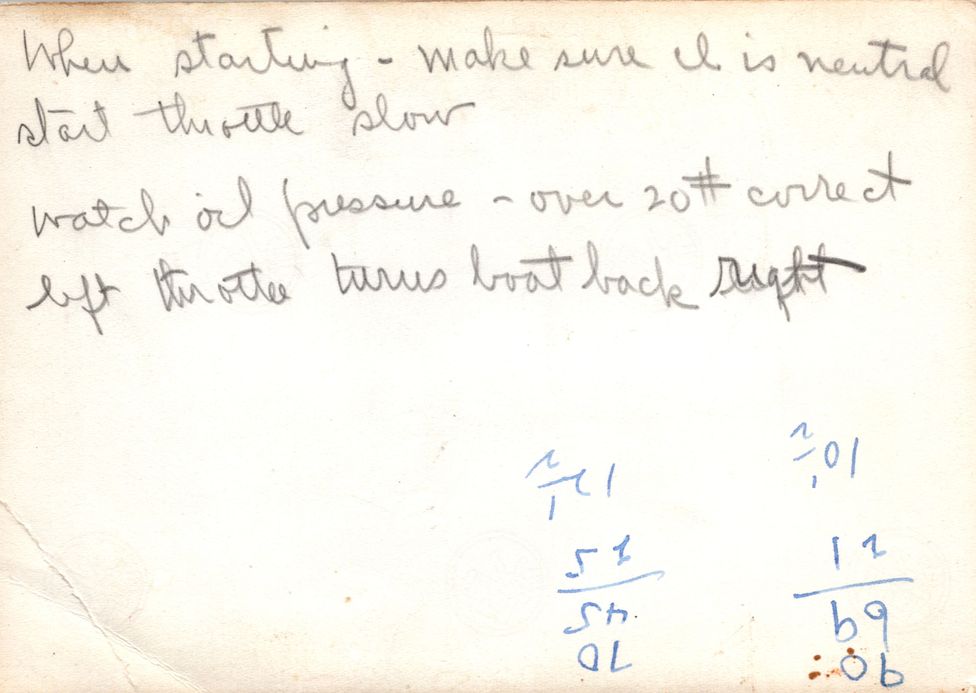 When starting - make sure it is neutral
start throttle slow
watch oil pressure - over 20# correct
left throttle turns boat back right
90 70
69 45
21 25
10 1/2 12 1/2